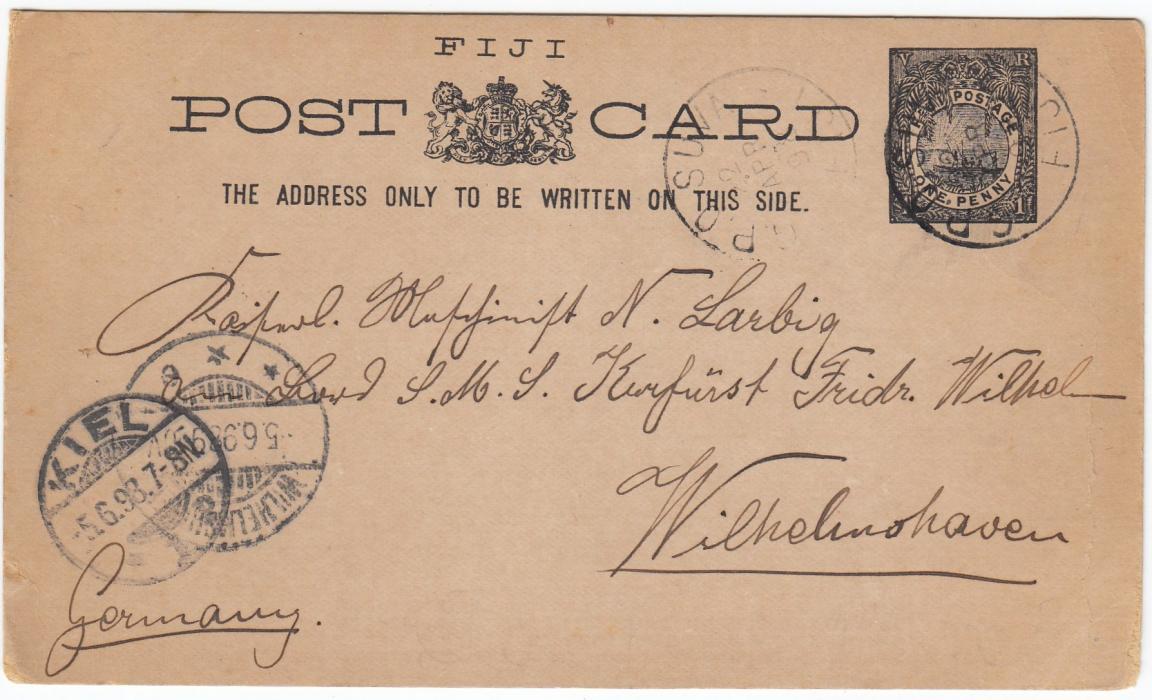 FIJI
POST CARD
THE ADDRESS ONLY TO BE WRITTEN ON THIS SIDE.
V R
FIJI POSTAGE
ONE PENNY
1 1
G.P.O. SUVA FIJI
APR
G.P.O. FIJI
Kaiserl. Maschinist N. Larbig
an Bord S. M. S. Kurfürst Fridr. Wilhelm
Wilhelmshaven
KIEL
5.6.98.7-8N.
5.6.98
Germany.